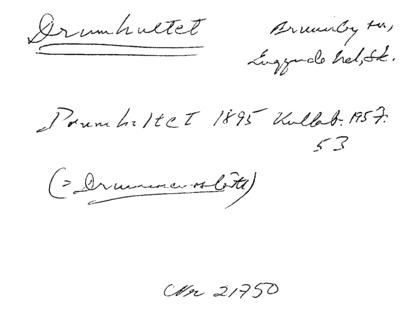 Drumhultet
Brunnby sn,
Luggude hd, Sk.
Drumhultet 1895 Kullab. 1957.
53
(=
Nr 21750